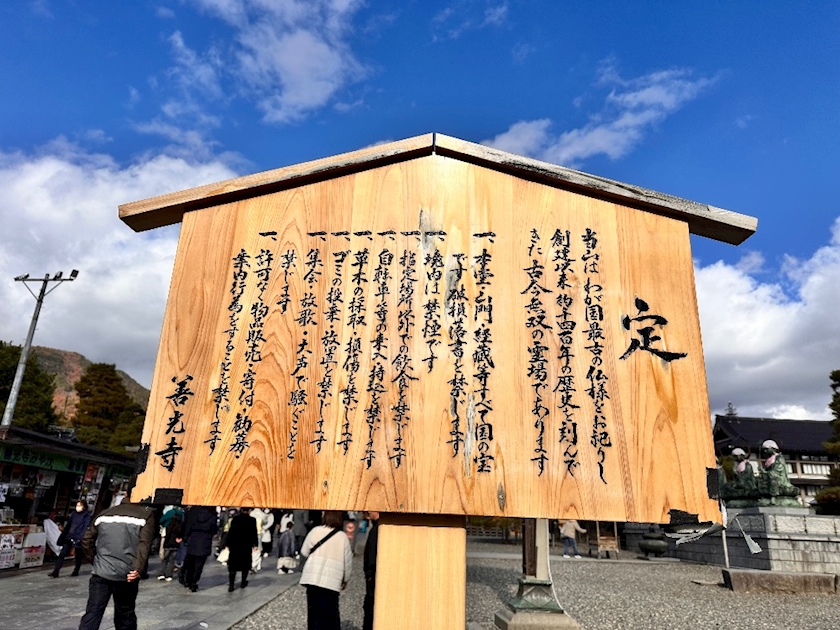 定
当山はわが国最古の仏様をお祀りし
創建以来約千四百年の歴史を刻んで
きた古今無双の霊場であります
一、本堂・山門・経蔵等すべて国の宝
です 破損・落書を禁じます
一、境内は禁煙です
一、指定場所以外での飲食を禁じます
一、自転車等の乗入・持込を禁じます
一、草木の採取・損傷を禁じます
一、ゴミの投棄・放置を禁じます
一、集会・放歌・大声で騒ぐことを
禁じます
一、許可なく物品販売・寄付・勧募
案内行為をすることを禁じます
善光寺